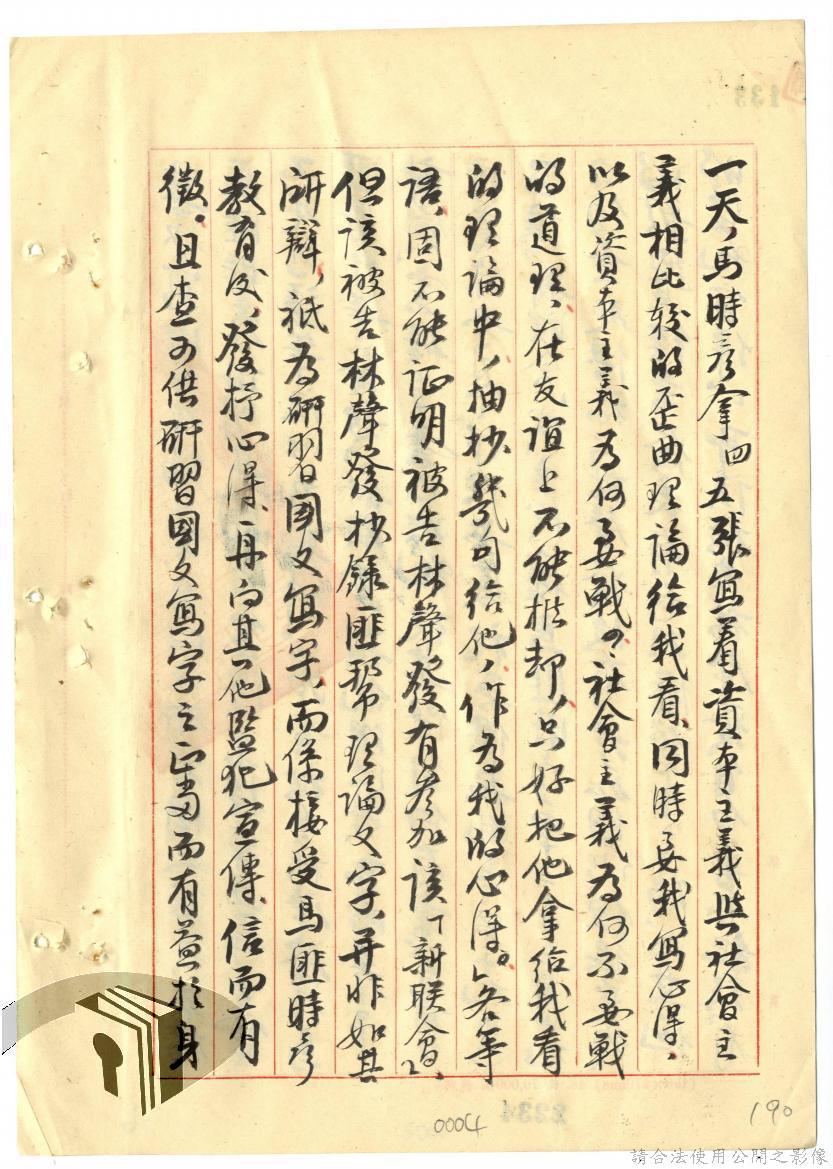 一天,馬時彥拿四五張寫着資本主義與社會主
義相比較的歪曲理論給我看、同時要我寫心得、
以及資本主義為何要戰?社會主義為何不要戰
的道理、在友誼上不能推却,只好把他拿給我看
的理論中,抽抄幾句給他,作為我的心得。」各等
語、固不能証明被告林聲發有參加該「新联會」、
但該被告林聲發抄錄匪幫理論文字、并非如其
所辯,祇為研習國文寫字、而係接受馬匪時彥
教育後,發抒心得、再向其他監犯宣傳、信而有
徵。且查可供研習國文寫字之正當而有益於身
0004
190
請合法使用公開之影像